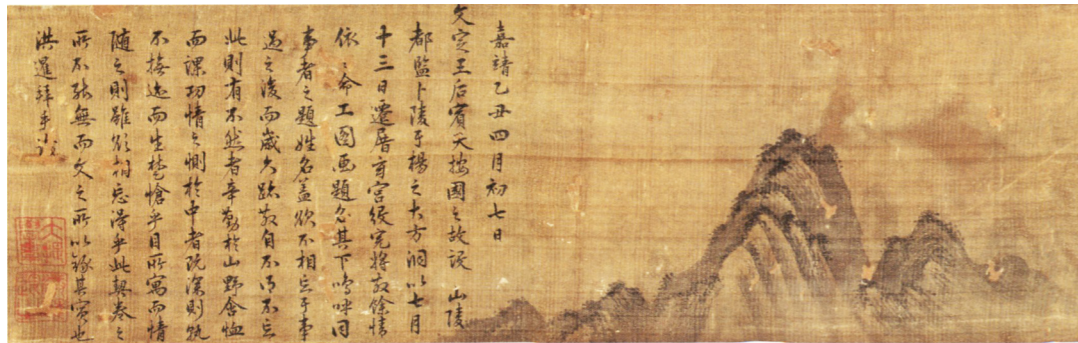 嘉靖乙丑四月初七日
文定王后賓天按國之故設 山陵
都監卜陵于楊之大方洞以七月
十三日遷厝 玄宮役完將散餘情
依〻命工圖画題名其下嗚呼同
事者之題姓名盖欲不相忘于事
過之後而歲久跡散自不得不忘
此則有不然者辛勤於山野含恤
而課功情之惻於中者既深則孰
不撫迹而生楚愴乎目所寓而情
随之則雖欲相忘得乎此契卷之
所不能無而文之所以錄其實也
洪暹拜手